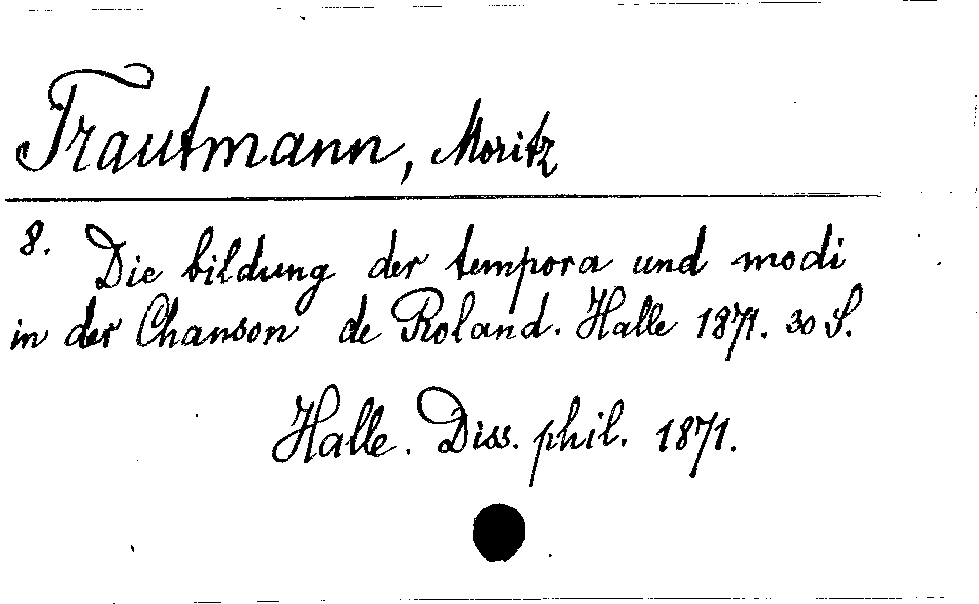 Trautmann, Moritz
8. Die bildung der tempora und modi
in der Chanson de Roland. Halle 1871. 30 S.
Halle. Diss. phil. 1871.